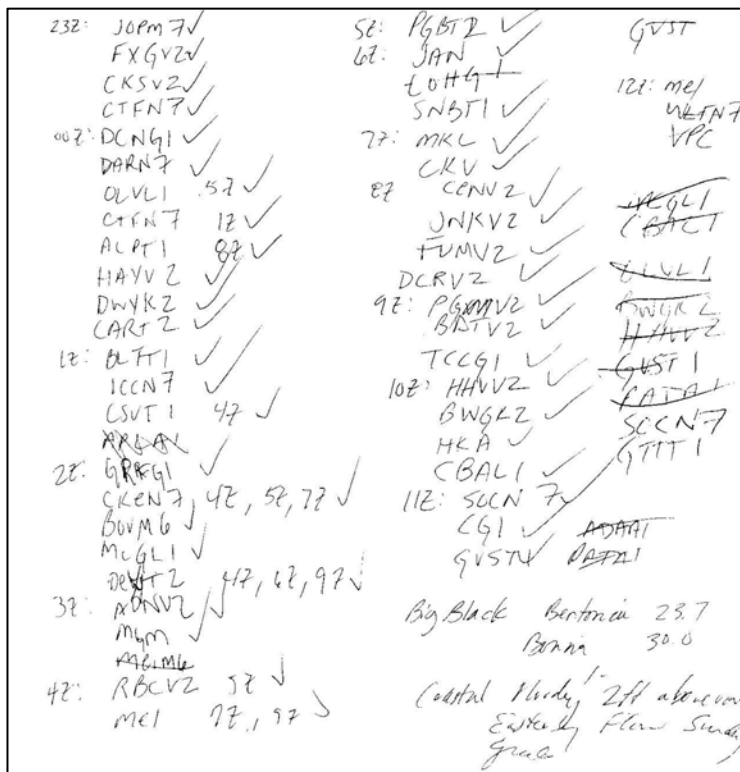 23Z: JOPM7 ✓
FXGV2 ✓
CKSV2 ✓
CTFN7 ✓
00Z: DCNG1 ✓
DARN7 ✓
OLVL1 5Z ✓
CTFN7 1Z ✓
ALPT1 8Z ✓
HAYV2 ✓
DWYK2 ✓
CART2 ✓
1Z: BLFT1 ✓
ICCN7 ✓
CSVT1 4Z ✓
2Z: GRFG1 ✓
CKEN7, 4Z, 5Z, 7Z ✓
BOVM6 ✓
MCGL1 ✓
4Z, 6Z, 9Z ✓
3Z: ADNV2 ✓
MGM ✓
MEIM6
4Z: RBCV2 5Z ✓
MEI 7Z, 9Z ✓
5Z: PGBT2 ✓
6Z: JAN ✓
LOHG1
SNBT1 ✓
7Z: MKL ✓
CKV ✓
8Z CENV2 ✓
JNKV2 ✓
FUMV2 ✓
DCRV2 ✓
9Z: PGMV2 ✓
BATV2 ✓
TCCG1 ✓
10Z: HHVV2 ✓
BWGK2 ✓
HKA ✓
CBAL1 ✓
11Z: SOCN7 ✓
CG1 ✓
GVST1 ✓
GVST
12Z: MEI
WLTN7
VPC
MCGL1
CBAL1
OLVL1
BWGK2
HHVV2
GVST1
PATA1
SOCN7
GTTT1
ADAA1
PATA1
Big Black Bentonia 23.7
Bovina 30.0
Coastal 2ft above
Easterly Flow